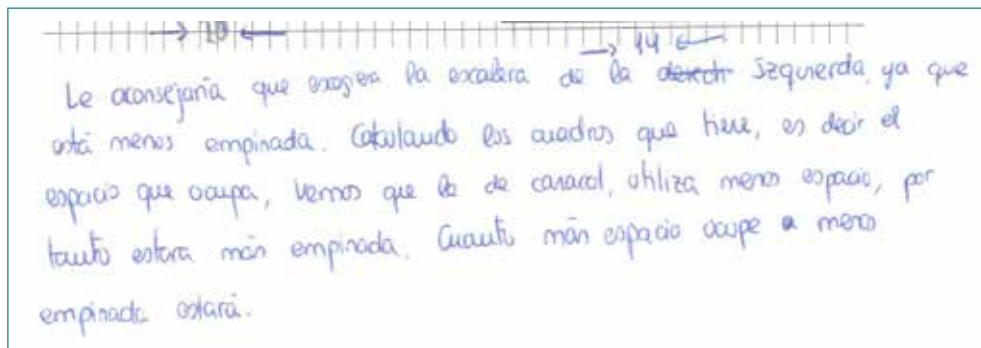 → 10 ←
→ 14 ←
Le aconsejaría que escogiera la escalera de la derech Izquierda, ya que
está menos empinada. Calculando los cuadros que tiene, es decir el
espacio que ocupa, vemos que la de caracol, utiliza menos espacio, por
tanto estara más empinada. Cuanto más espacio ocupe menos
empinada estará.